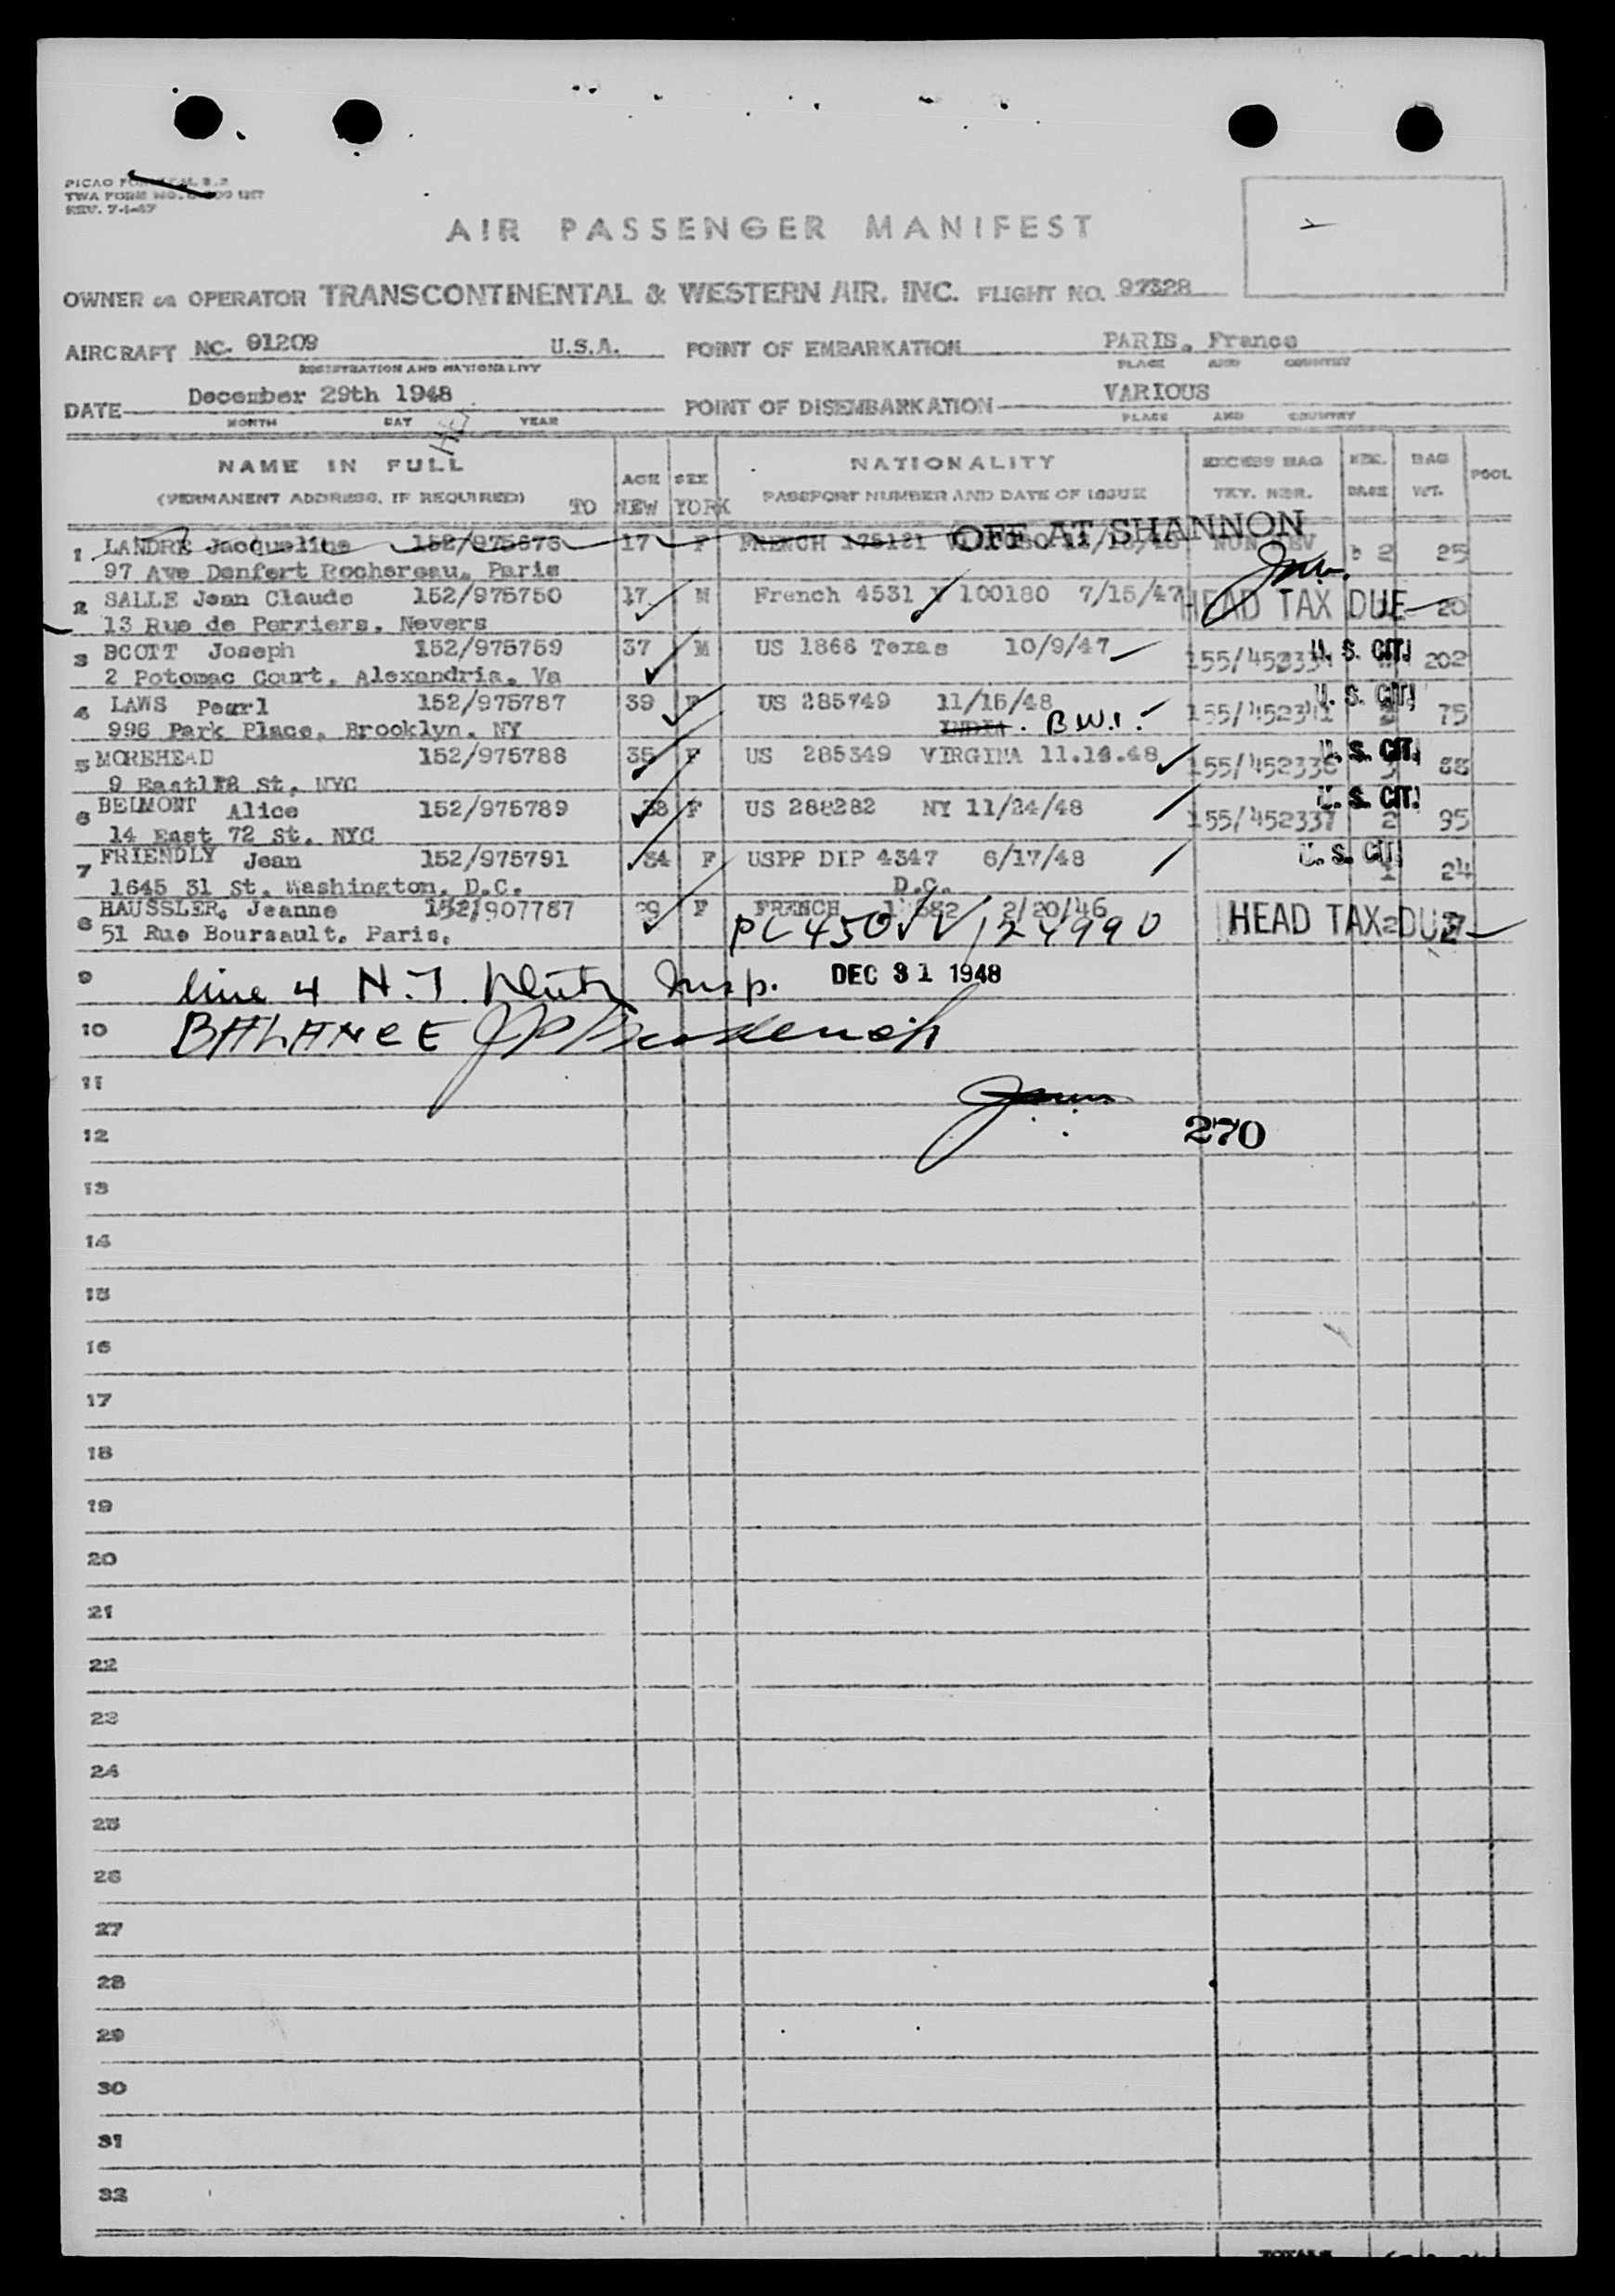 REV. 7-1-47
AIR PASSENGER MANIFEST
OWNER OR OPERATOR TRANSCONTINENTAL & WESTERN AIR. INC. FLIGHT NO. 97328
AIRCRAFT NC. 91209 U.S.A. POINT OF EMBARKATION PARIS, France
REGISTRATION AND NATIONALITY PLACE AND COUNTRY
DATE December 29th 1948 POINT OF DISEMBARKATION VARIOUS
MONTH DAY YEAR PLACE AND COUNTRY
NAME IN FULL AGE SEX NATIONALITY EXCESS BAG BAG POOL
(PERMANENT ADDRESS, IF REQUIRED) TO NEW YORK PASSPORT NUMBER AND DATE OF ISSUE TKT. NBR. WT.
OFF AT SHANNON
1 LANDRE Jacqueline 17 F FRENCH 175121 NON REV 2 25
97 Ave Denfert Rochereau, Paris
2 SALLE Jean Claude 152/975750 17 M French 4531 V 100180 7/15/47 HEAD TAX DUE 20
13 Rue de Perriers, Nevers
3 BCOTT Joseph 152/975759 37 M US 1868 Texas 10/9/47 U. S. CIT. 202
2 Potomac Court, Alexandria, Va
4 LAWS Pearl 152/975787 39 F US 285749 11/15/48 155/452341 U. S. CIT. 75
996 Park Place, Brooklyn, NY INDIA. B.W.I.
5 MOREHEAD 152/975788 35 F US 285349 VIRGINA 11.14.48 155/452336 U. S. CIT. 3 88
St. NYC
6 BELMONT Alice 152/975789 38 F US 288282 NY 11/24/48 155/452337 U. S. CIT. 2 95
14 East 72 St. NYC
7 FRIENDLY Jean 152/975791 34 F USPP DIP 4347 6/17/48 U. S. CIT. 1 24
1645 31 St. Washington, D.C. D.C.
8 HAUSSLER, Jeanne 152/907787 29 F FRENCH 2/20/46 HEAD TAX DUE
51 Rue Boursault, Paris.
9 line 4 N.J. Insp. DEC 31 1948
10 BALANCE
11
12 270
13
14
15
16
17
18
19
20
21
22
23
24
25
26
27
28
29
30
31
32
TOTALS